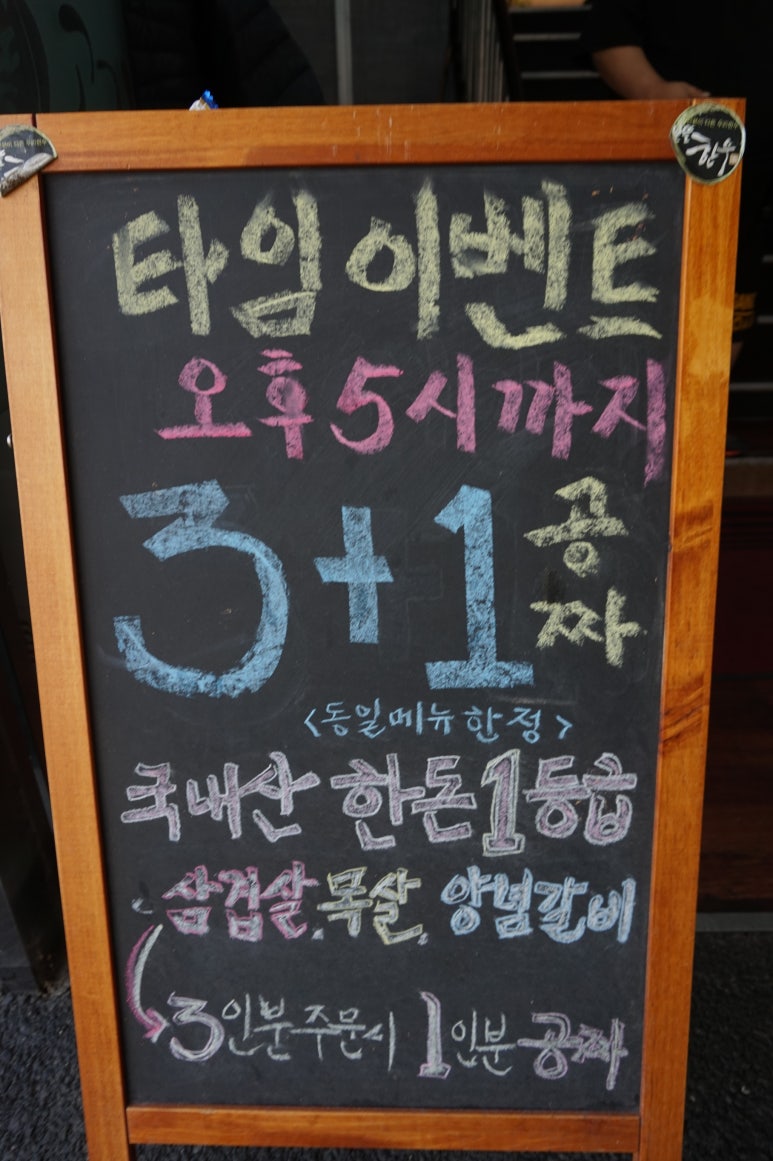 타임이벤트
오후5시까지
3+1 공짜
<동일메뉴한정>
국내산 한돈1등급
삼겹살.목살. 양념갈비
3인분주문시 1인분 공짜